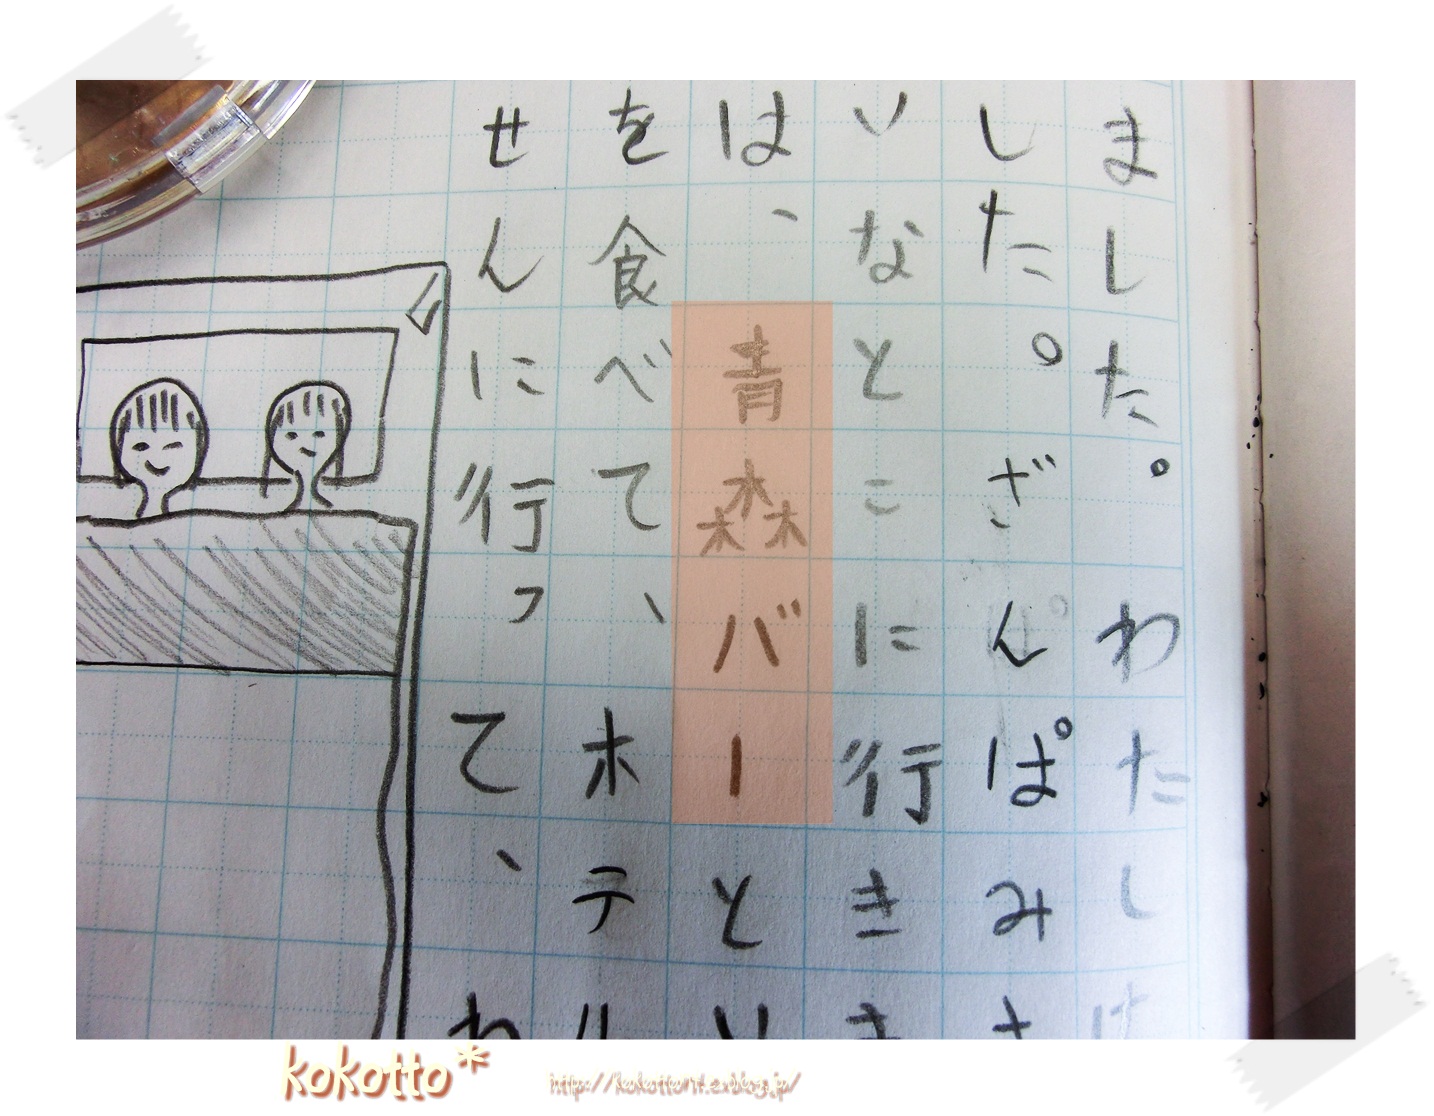 ました。わたしは
した。ざんぱみさ
いなとこに行きま
は、青森バーとい
を食べて、ホテル
せんに行って、わ
kokotto*